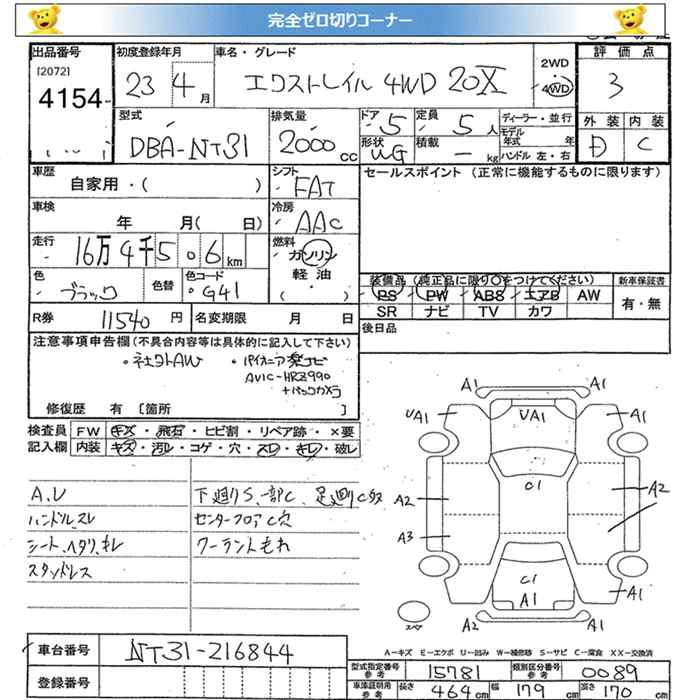 完全ゼロ切りコーナー
出品番号 初度登録年月 車名・グレード 2WD 評価点
[2072] 4154 23 4月 エクストレイル 4WD 20X 4WD 3
型式 排気量 ドア 定員 ディーラー・並行 外装 内装
DBA-NT31 2000cc 5 5人 モデル年式 年 D C
形状 WG 積載 - kg ハンドル 左・右
車歴 シフト セールスポイント (正常に機能するものに限ります)
自家用・( ) FAT
車検 冷房
年 月( 日) AAC
走行 燃料
16万4千506km ガソリン
軽油
・( )
色 色替 色コード 装備品(純正品に限り○をつけてください) 新車保証書
ブラック G41 PS PW ABS エアB AW 有・無
SR ナビ TV カワ
R券 11540円 名変期限 月 日 後日品
注意事項申告欄(不具合内容等は具体的に記入して下さい)
・社外AW ・パイオニア楽ナビ
AVIC-HRZ990
+バックカメラ
修復歴 有 [箇所 ]
検査員 FW キズ・飛石・ヒビ割・リペア跡・×要
記入欄 内装 キズ・汚レ・コゲ・穴・スレ・キレ・破レ
A.V 下廻りS、一部C、足廻りC多
ハンドル.スレ センターフロアC穴
シート、ヘタリ、キレ クーラントもれ
スタッドレス
A1 A1
UA1 UA1 A1
C1
A2 A2
A3
C1
A1 A1
スペア A2 A1
A-キズ E-エクボ U-凹み W-補修跡 S-サビ C-腐食 XX-交換済
車台番号 NT31-216844
登録番号
型式指定番号 参考 15781 類別区分番号 参考 0089
車庫証明用 参考 長さ 464cm 幅 179cm 高さ 170cm